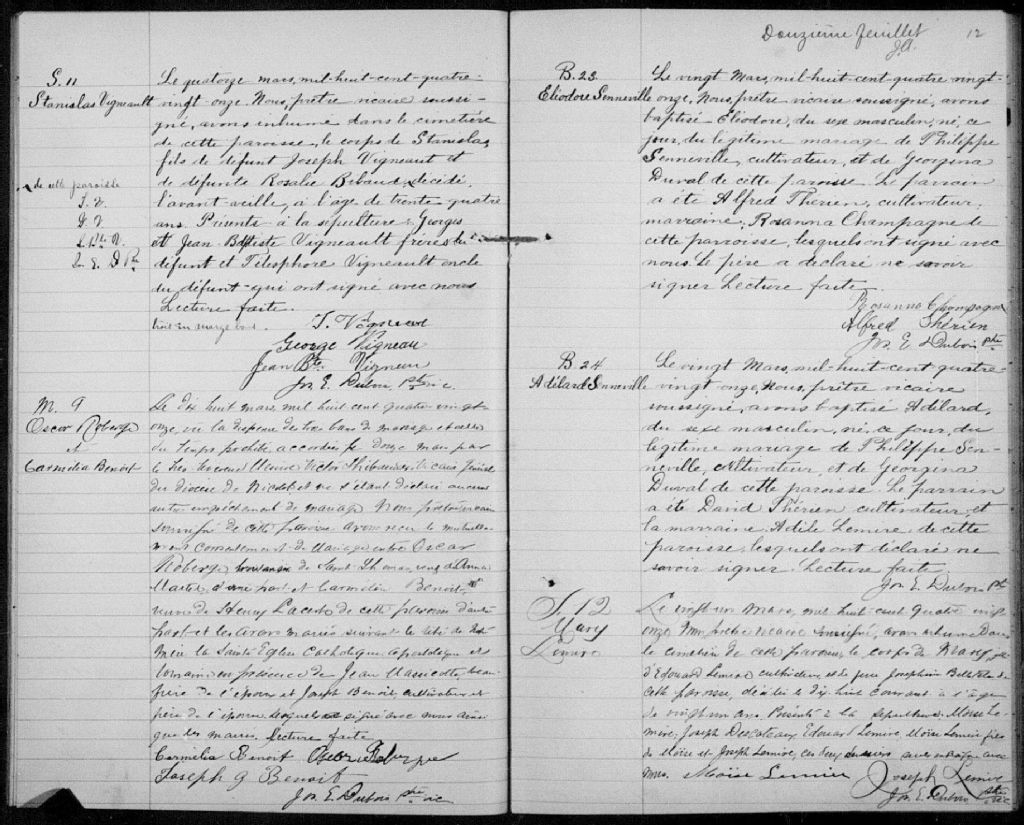 S. 11
Stanislas Vigneault
Le quatorze mars, mil-huit-cent-quatre-
vingt-onze. Nous, prêtre vicaire soussi-
gné, avons inhumé dans le cimetière
de cette paroisse, le corps de Stanislas
fils de défunt Joseph Vigneault et
de défunte Rosalie Bibaud, décédé,
l'avant-veille, à l'âge de trente quatre
ans. Présents à la sépulture: Georges
et Jean-Bptiste Vigneault frères du
défunt et Télesphore Vigneault oncle
du défunt qui ont signé avec nous
Lecture faite.
de cette paroisse
T. V.
G. V.
J. Bte V.
J. E. D Ptre
T. Vigneau
George Vigneau
Jean Bte Vigneau
Jos E. Dubois Ptre vic.
M. 9
Oscar Roberge
et
Carmélia Benoit
Le dix huit mars, mil huit cent quatre vingt
onze, vu la dispense de trois bans de mariage et celle
du temps prohibé accordées le douze mars par
le très révérend
du diocèse de Nicolet et ne s'étant déclaré aucun
autre empêchement de mariage Nous prêtre vicaire
soussigné de cette paroisse avons reçu le mutuelle-
ment consentement de mariage entre Oscar
Roberge de Saint
d'une part et Carmélia Benoit
veuve de Henry de cette paroisse d'autre
part et les avons mariés suivant le rite de notre
Mère la Sainte Eglise Catholique, apostolique et
romaine en présence de Jean Massicotte, beau-
père de l'époux et Joseph Benoit, cultivateur et
père de l'épouse lesquels ont signé avec nous ainsi
que les mariés. Lecture faite
Carmélia Benoit Oscar Roberge
Joseph G Benoit
Jos. E. Dubois Ptre vic
Douzième feuillet
J.A.
12
B. 23
Eliodore Senneville
Le vingt Mars, mil-huit-cent quatre vingt-
onze, Nous, prêtre vicaire soussigné, avons
baptisé Eliodore, du sexe masculin, né, ce
jour, du légitime mariage de Philippe
Senneville, cultivateur, et de Georgina
Duval de cette paroisse. Le parrain
a été Alfred Therien, cultivateur,
marraine, Rosanna Champagne de
cette parroisse, lesquels ont signé avec
nous. Le père a déclaré ne savoir
signer Lecture faite.
Rosanna Champagne
Alfred Thérien
Jos E Dubois Ptre
B. 24
Adélard Senneville
Le vingt Mars, mil-huit-cent-quatre-
vingt onze, Nous, prêtre vicaire
soussigné, avons baptisé Adélard,
du sexe masculin, né, ce jour, du
légitime mariage de Philippe Sen-
neville, cultivateur, et de Georgina
Duval de cette paroisse. Le parrain
a été David Thérien cultivateur, et
la marraine Adèle Lemire de cette
paroisse, lesquels ont déclaré ne
savoir signer. Lecture faite
Jos E. Dubois Pt
S. 12
Mary
Lemire
Le vingt un Mars, mil huit-cent quatre vingt
onze, Nous prêtre vicaire soussigné, avons inhumé dans
le cimetière de cette paroisse, le corps de Mary
d'Edouard Lemire cultivateur, et de feue Joséphine de
cette paroisse, décédée le dix-huit courant à l'âge
de vingt un ans. Présents à la sépulture: Moise Le-
mire, Joseph Descoteaux, Edouard Lemire Moise Lemire fils
de Moise et Joseph Lemire, ces deux avec
nous. Moise Lemire Joseph Lemire
Jos. E. Dubois Ptre vic